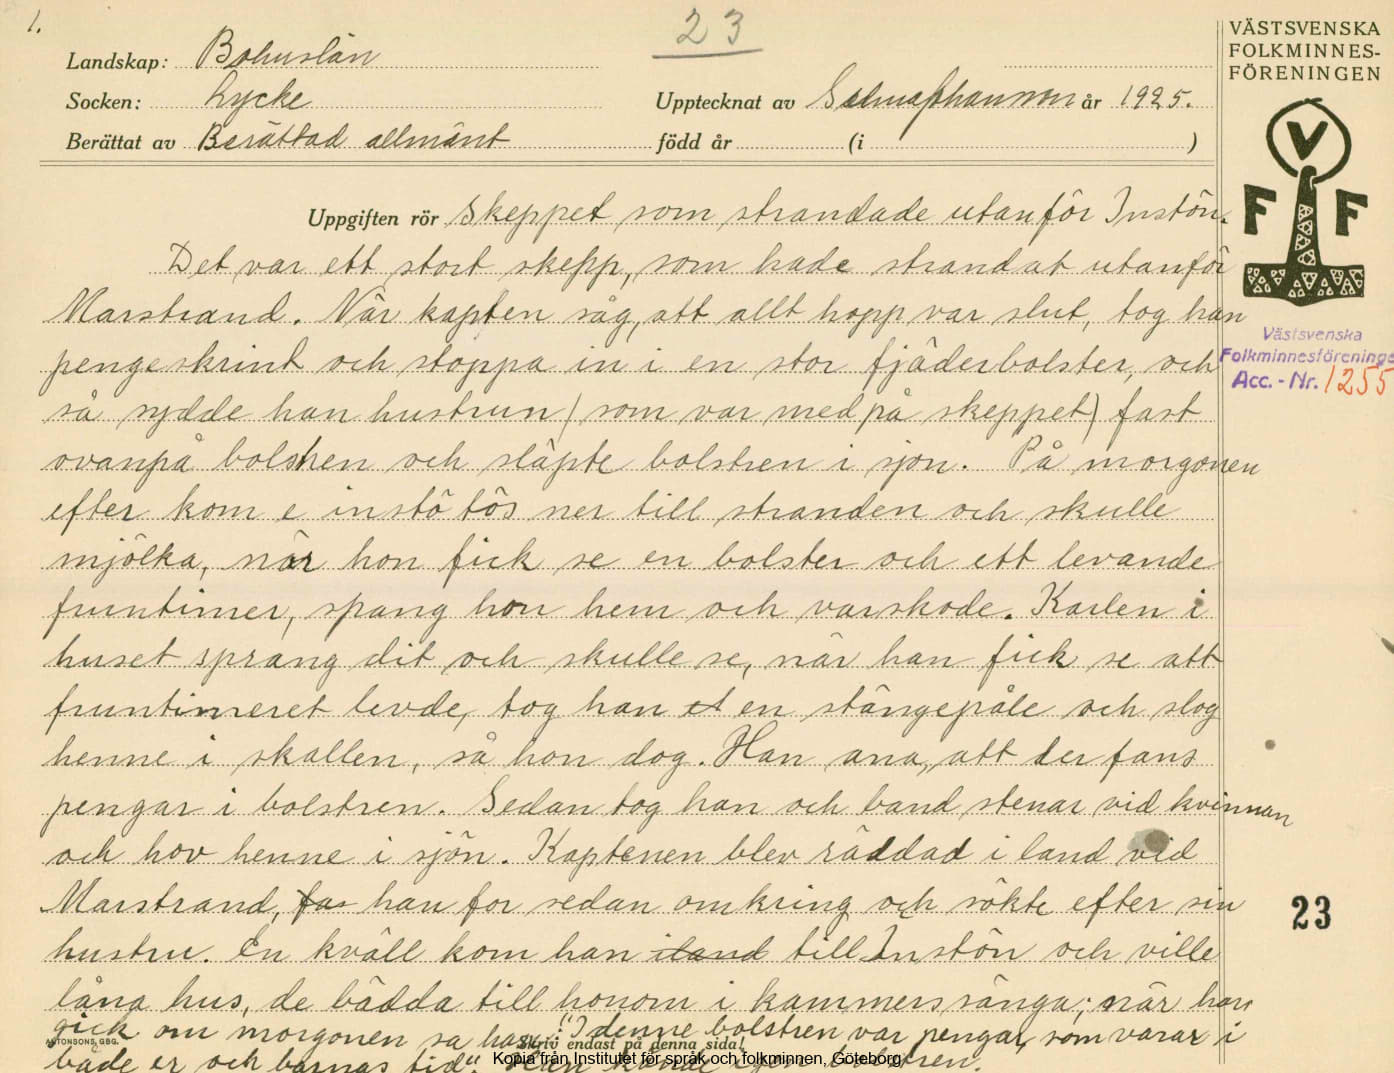 1.
23
VÄSTSVENSKA
FOLKMINNES-
FÖRENINGEN
Landskap: Bohuslän
Socken: Lycke
Upptecknat av Selma Johansson år 1925.
Berättat av Berättad allmänt född år (i )
V
F F
Uppgiften rör Skeppet som strandade utanför Instön.
Det var ett stort skepp, som hade strandat utanför
Marstrand. När kapten såg, att allt hopp var slut, tog han
pengeskrint och stoppa in i en stor fjäderbolster, och
så sydde han hustrun (som var med på skeppet) fast
ovanpå bolstren och släpte bolstren i sjön. På morgonen
efter kom e instö tös ner till stranden och skulle
mjölka, när hon fick se en bolster och ett levande
fruntimer, spang hon hem och varskode. Karlen i
huset sprang dit och skulle se, när han fick se att
fruntimeret levde, tog han et en stängepåle och slog
henne i skallen, så hon dog. Han ana, att der fans
pengar i bolstren. Sedan tog han och band stenar vid kvinnan
och hov henne i sjön. Kaptenen blev räddad i land vid
Marstrand, fas han for sedan omkring och sökte efter sin
hustru. En kväll kom han iland till Instön och ville
låna hus, de bädda till honom i kammerssänga; när han
gick om morgonen sa han: "I denne bolstren var pengar, som varar i
både er och barnas tid". Han kände igen bolstren.
Västsvenska
Folkminnesförening
Acc.-Nr. 1255
23
ANTONSONS, GBG.
Skriv endast på denna sida!
Kopia från Institutet för språk och folkminnen, Göteborg